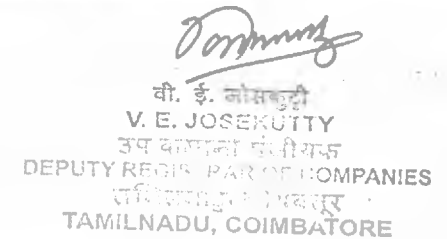 वी. ई. जोसकुट्टी
V. E. JOSEKUTTY
उप कम्पनी पंजीयक
DEPUTY REGISTRAR OF COMPANIES
TAMILNADU, COIMBATORE